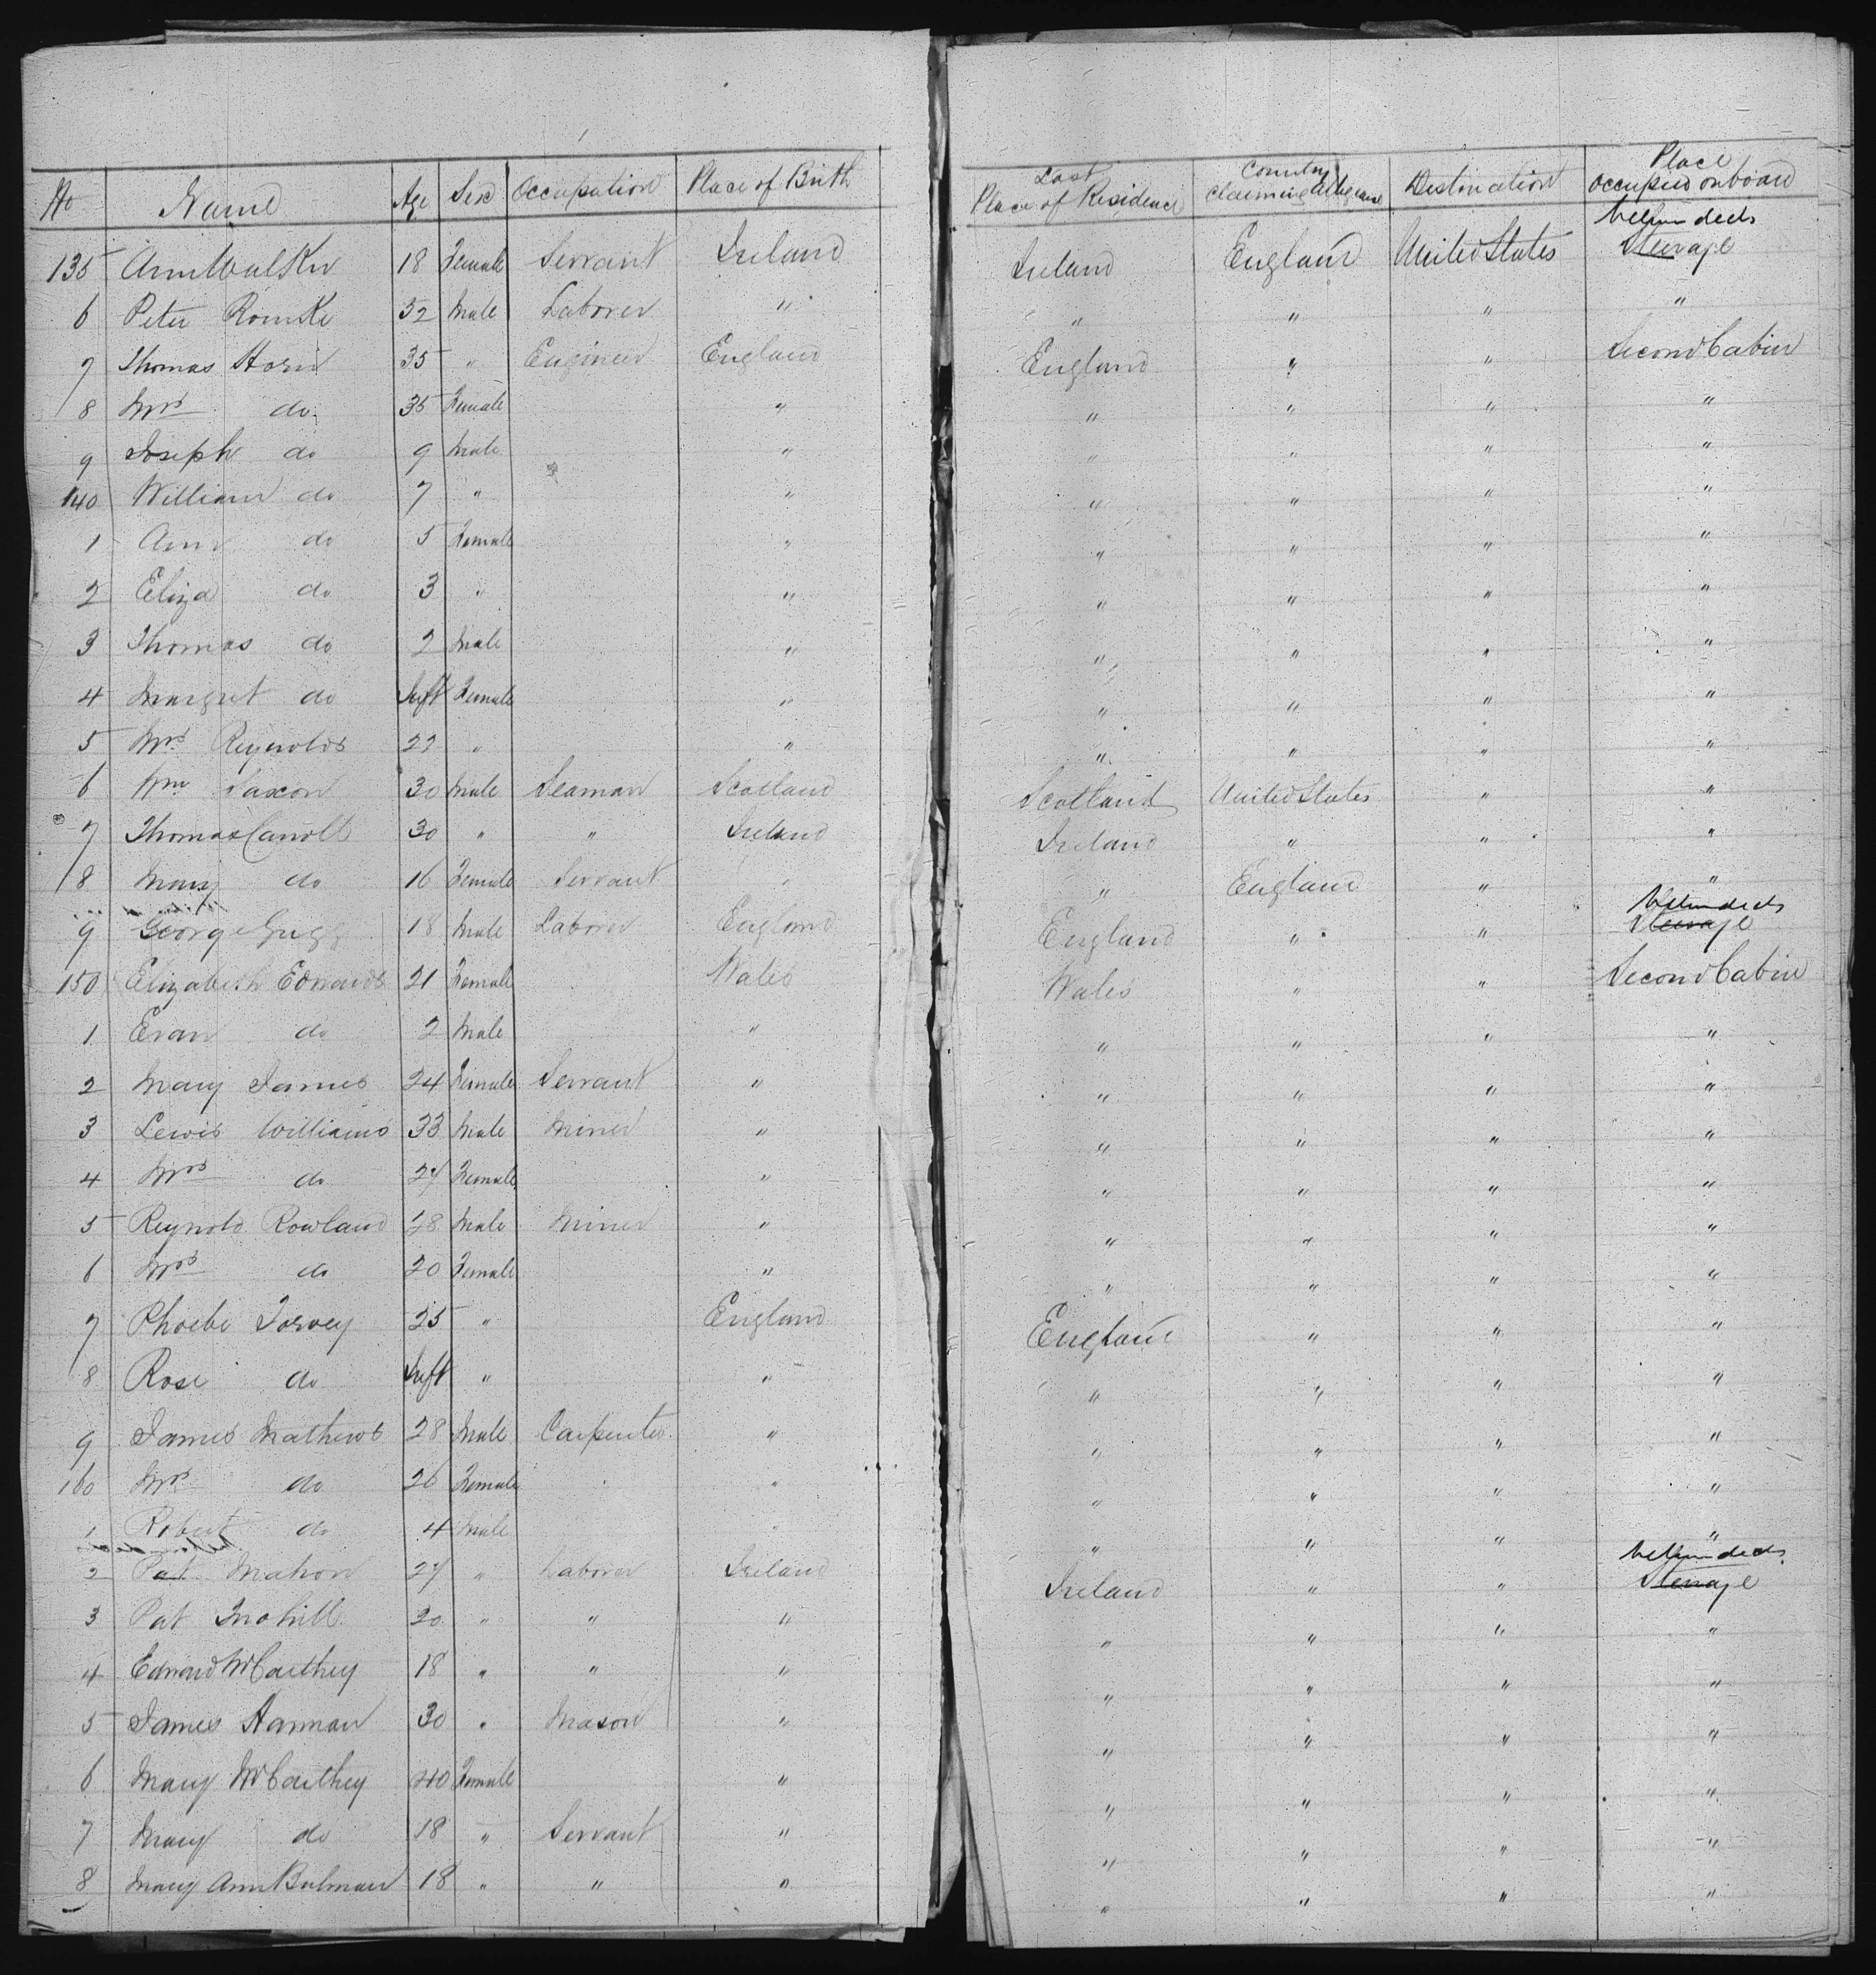 No Name Age Sex Occupation Place of Birth Last Place of Residence Country Claiming Allegiance Destination Place occupied on board
135 Ann Walker 18 Female Servant Ireland Ireland England United States between decks Steerage
6 Peter Rourke 32 Male Laborer " " " " "
7 Thomas Horn 35 " Engineer England England " " Second Cabin
8 Mrs do 35 Female " " " " "
9 Joseph do 9 Male " " " " "
140 William do 7 " " " " " "
1 Ann do 5 Female " " " " "
2 Eliza do 3 " " " " " "
3 Thomas do 2 Male " " " " "
4 Margret do Inft Female " " " " "
5 Mrs Reynolds 22 " " " " " "
6 Wm Saxon 30 Male Seaman Scotland Scotland United States " "
7 Thomas Carroll 30 " " Ireland Ireland " " "
8 Mary do 16 Female Servant " " England " "
9 George Grigg 18 Male Laborer England England " " between decks Steerage
150 Elizabeth Edwards 21 Female Wales Wales " " Second Cabin
1 Evan do 2 Male " " " " "
2 Mary James 24 Female Servant " " " " "
3 Lewis Williams 33 Male Miner " " " " "
4 Mrs do 27 Female " " " " "
5 Reynold Rowland 28 Male Miner " " " " "
6 Mrs do 20 Female " " " " "
7 Phoebe 25 " England England " " "
8 Rose do Inft " " " " " "
9 James Mathews 28 Male Carpenter " " " " "
160 Mrs do 26 Female " " " " "
1 Robert do 4 Male " " " " "
2 Pat Mahon 27 " Laborer Ireland Ireland " " between decks Steerage
3 Pat 20 " " " " " " "
4 Edward McCarthey 18 " " " " " " "
5 James Hannan 30 " Mason " " " " "
6 Mary McCarthey 40 Female " " " " "
7 Mary do 18 " Servant " " " " "
8 Mary Ann Bulman 18 " " " " " " "